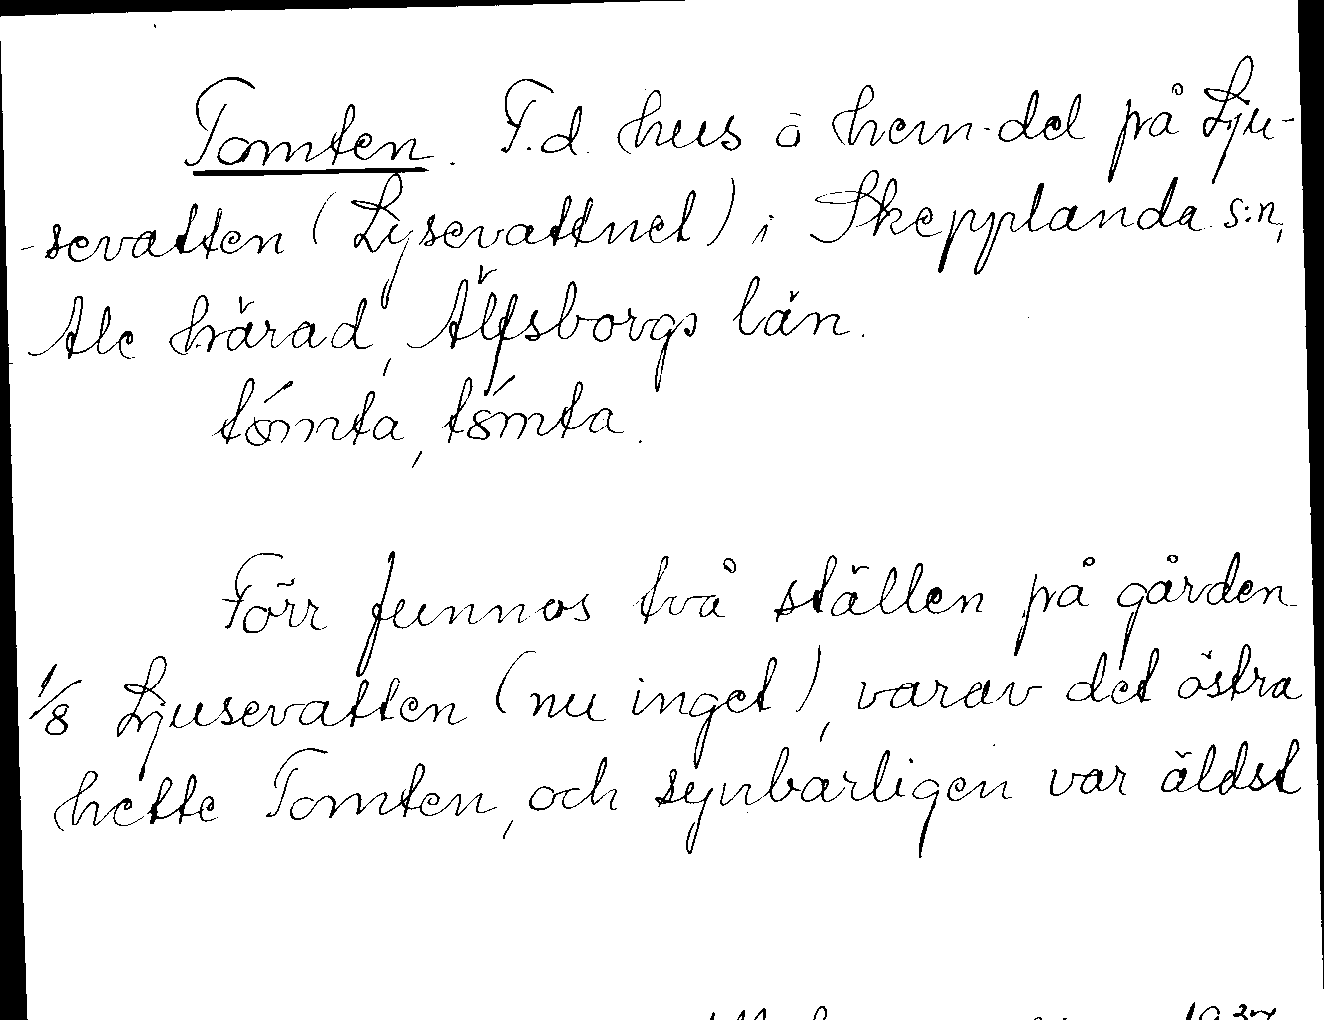 Tomten. F.d. hus o hem.del på Lju-
-sevatten (Lysevattnet) i Skepplanda s:n,
Ale härad, Älfsborgs län.
tómta, tómta.
Förr funnos två ställen på gården
1/8 Ljusevatten (nu inget), varav det östra
hette Tomten, och synbarligen var äldst
1937